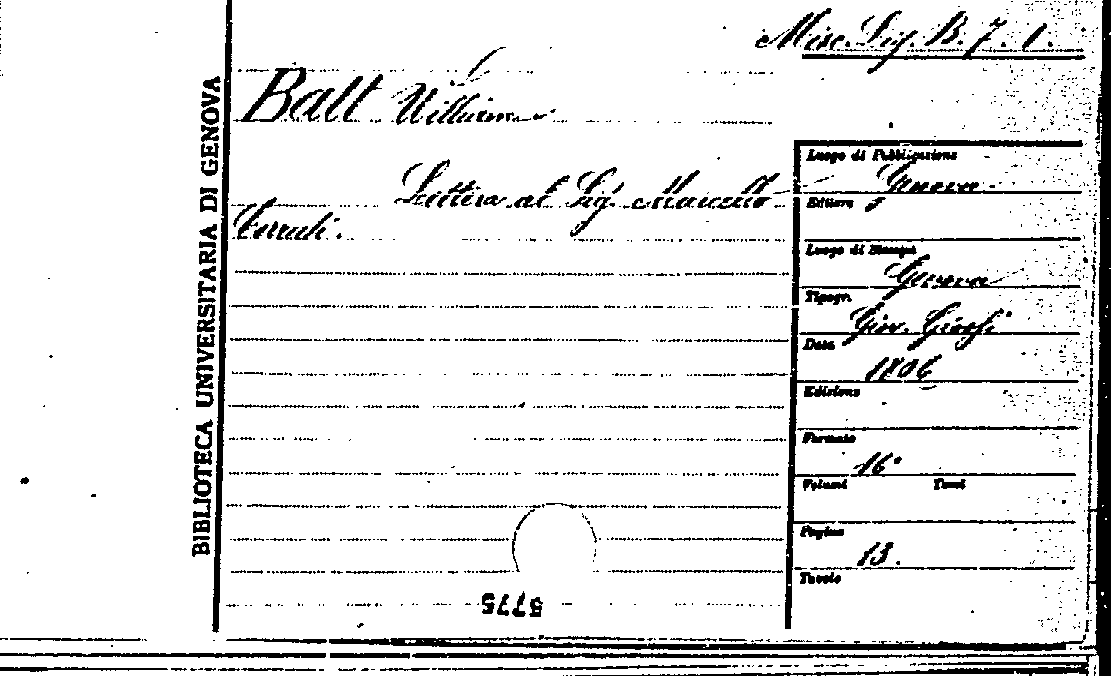 Misc. Lig. B. 7. 1.
Batt William
Lettera al Sig. Marcello
BIBLIOTECA UNIVERSITARIA DI GENOVA
Luogo di Pubblicazione
Genova
Editore
Luogo di Stampa
Genova
Tipogr.
Giov. Giossi
Data
1806
Edizione
Formato
16°
Volumi Tomi
Pagine
13.
Tavole
5775